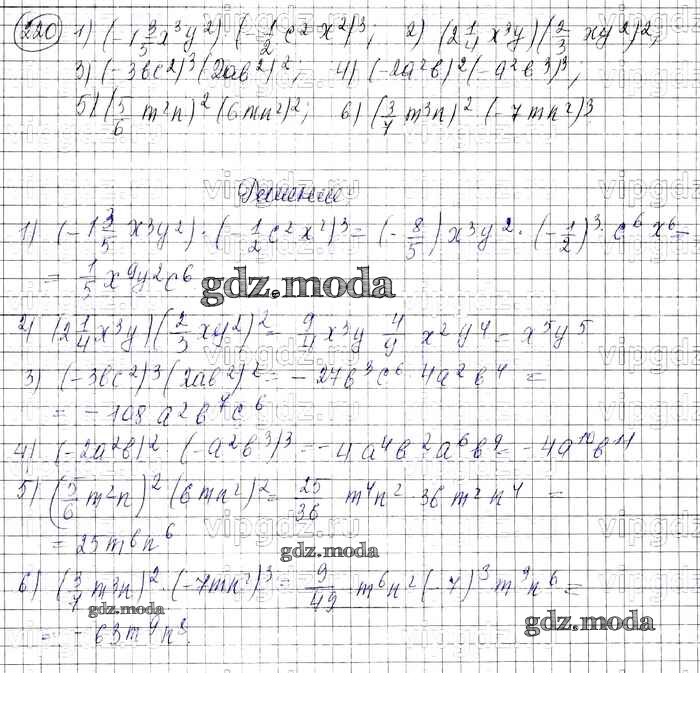 220 1) (-1 3/5 x³y²)(-1/2 c²x²)³; 2) (2 1/4 x³y)(2/3 xy²)²;
3) (-3bc²)³(2ab²)²; 4) (-2a²b)²(-a²b³)³;
5) (5/6 m²n)²(6mn²)²; 6) (3/7 m³n)²(-7mn²)³
Решение
1) (-1 3/5 x³y²)·(-1/2 c²x²)³ = (-8/5)x³y²·(-1/2)³·c⁶x⁶=
= 1/5 x⁹y²c⁶
gdz.moda
2) (2 1/4 x³y)(2/3 xy²)² = 9/4 x³y 4/9 x²y⁴ = x⁵y⁵
3) (-3bc²)³(2ab²)² = -27b³c⁶ 4a²b⁴ =
= -108 a²b⁷c⁶
4) (-2a²b)² (-a²b³)³ = -4a⁴b²a⁶b⁹ = -4a¹⁰b¹¹
5) (5/6 m²n)²(6mn²)² = 25/36 m⁴n²·36m²n⁴ =
= 25m⁶n⁶
gdz.moda
6) (3/7 m³n)²·(-7mn²)³ = 9/49 m⁶n²(-7)³m³n⁶ =
gdz.moda
= -63m⁹n⁸
gdz.moda